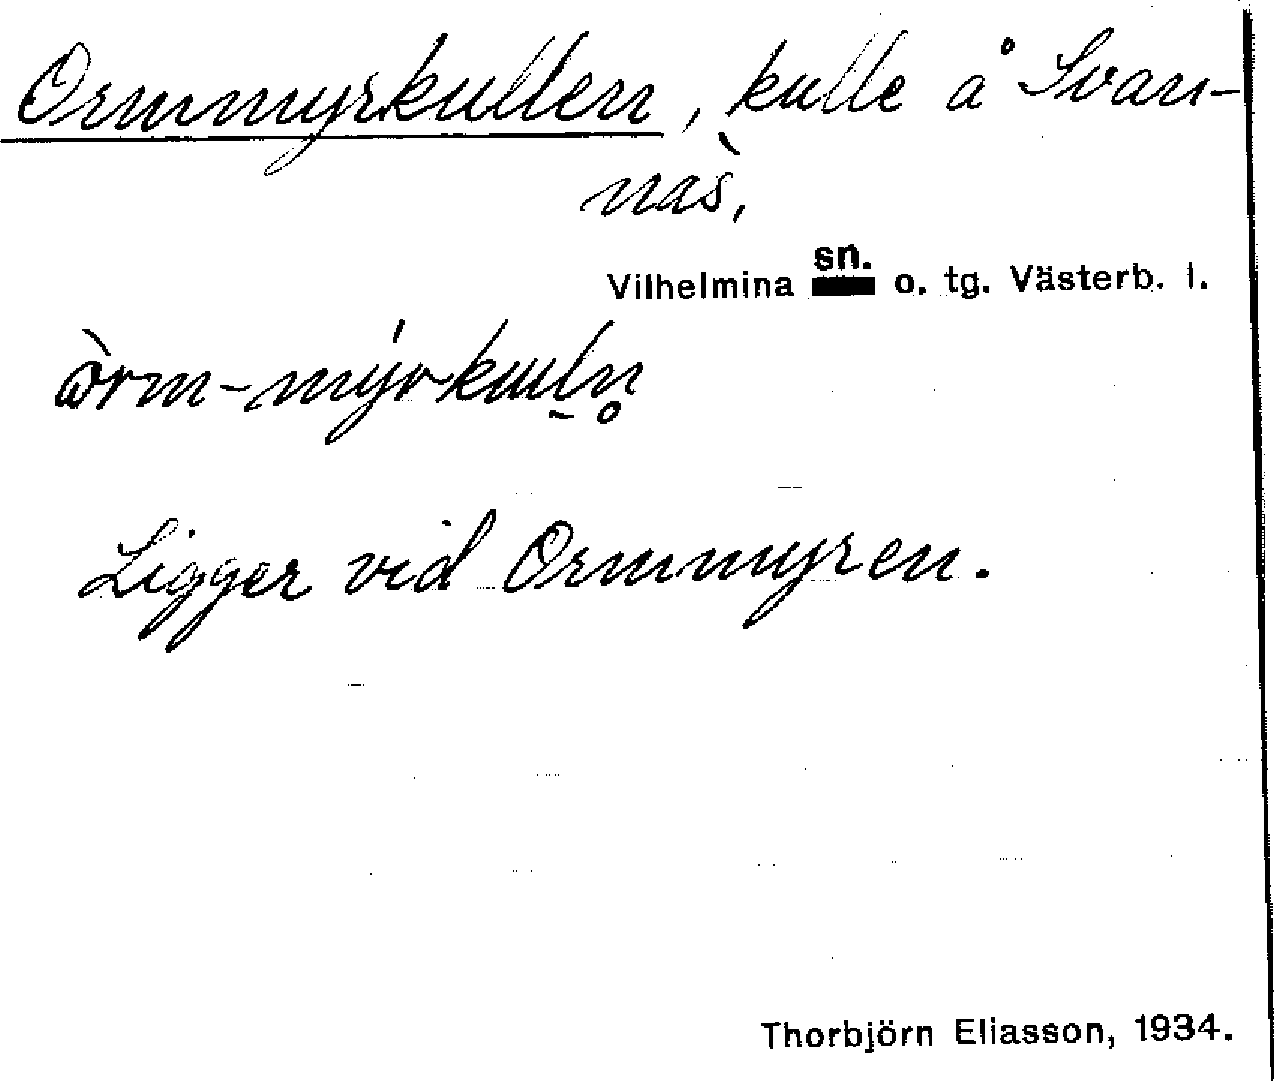 Ormmyrkullen, kulle å Svan-
näs,
Vilhelmina sn. o. tg. Västerb. l.
Ligger vid Ormmyren.
Thorbjörn Eliasson, 1934.